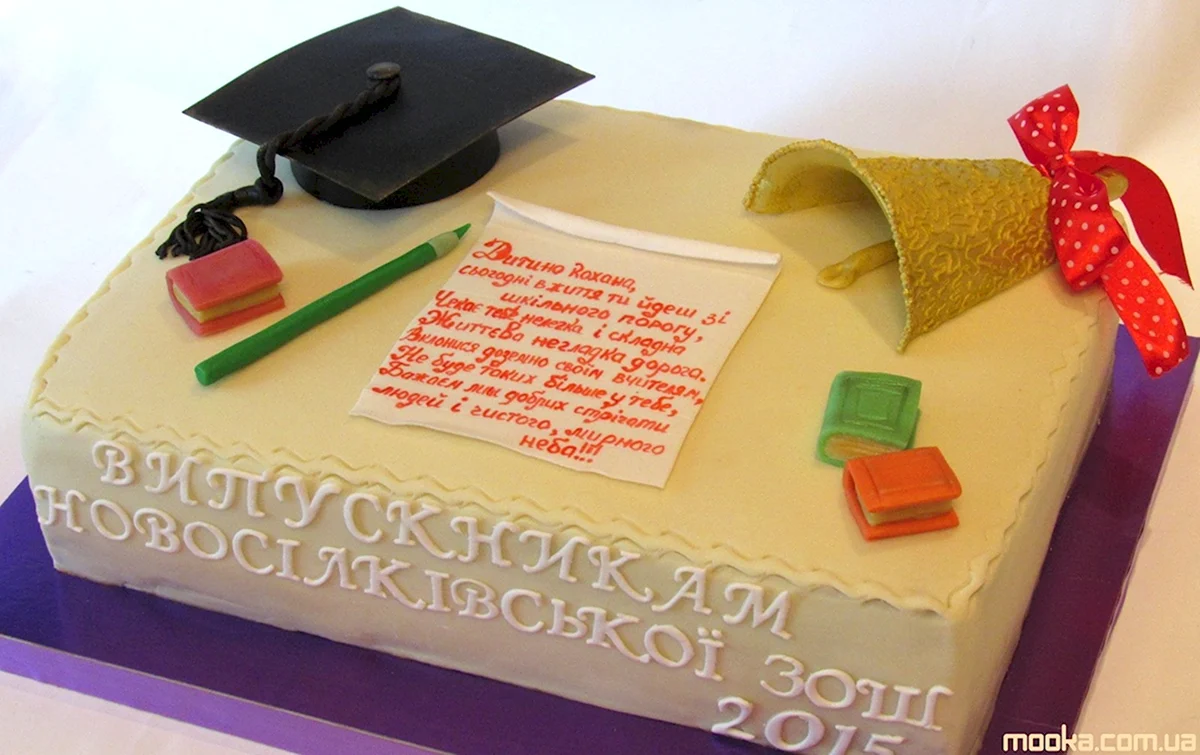 Дитино кохана,
сьогодні в життя ти йдеш зі
шкільного порогу,
Чекає тебе нелегка і складна
Життєва негладка дорога.
Вклонися доземно своїм вчителям,
Не буде таких більше у тебе,
Бажаєм ми добрих стрічати
людей і чистого, мирного
неба!!!
ВИПУСКНИКАМ
НОВОСІЛКІВСЬКОЇ ЗОШ
2015
mooka.com.ua